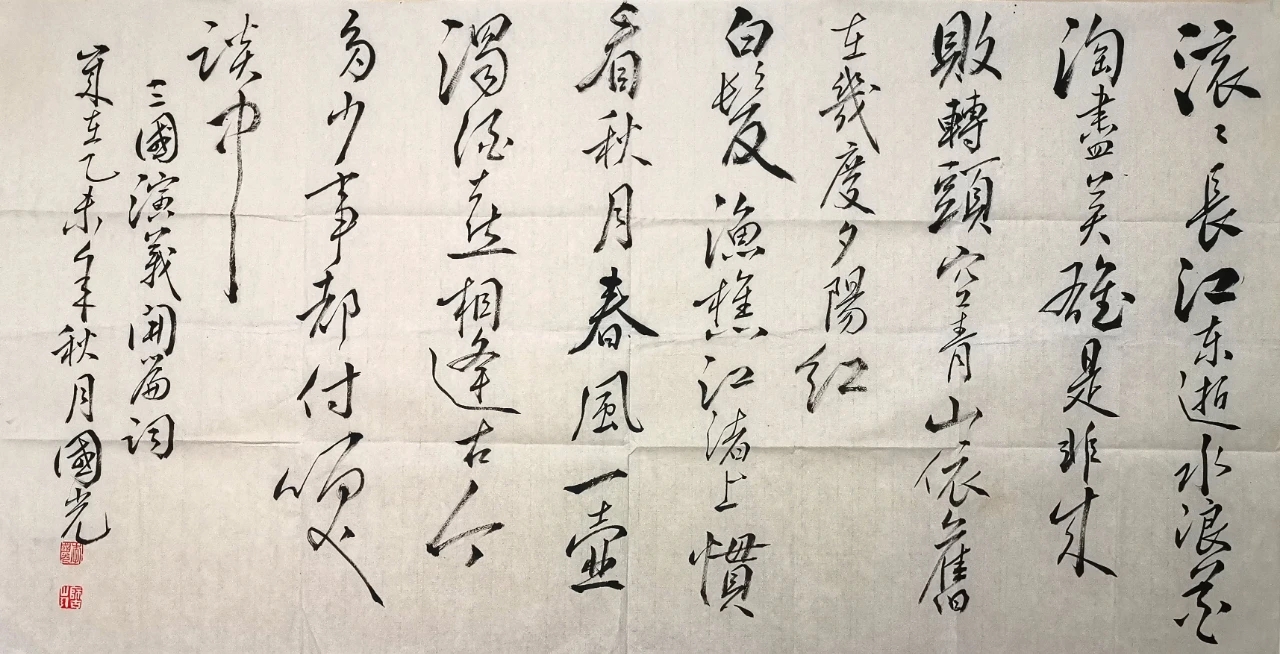 滚〻長江东逝水浪花
淘盡英雄是非成
敗轉頭空青山依舊
在幾度夕陽红
白髮漁樵江渚上慣
看秋月春風一壺
濁酒喜相逢古今
多少事都付咲
談中
三國演義開篇词
歲在乙未年秋月國光